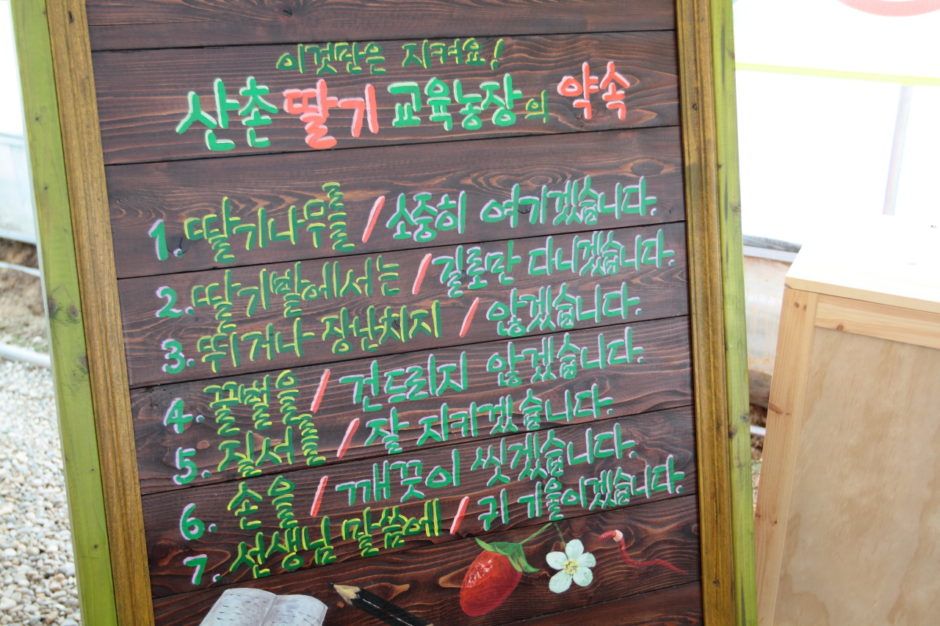 이것만은 지켜요!
산촌딸기교육농장의 약속
1. 딸기나무를/소중히 여기겠습니다.
2. 딸기밭에서는/길로만 다니겠습니다.
3. 뛰거나 장난치지/않겠습니다.
4. 꿀벌을/건드리지 않겠습니다.
5. 질서를/잘 지키겠습니다.
6. 손을/깨끗이 씻겠습니다.
7. 선생님 말씀에/귀 기울이겠습니다.